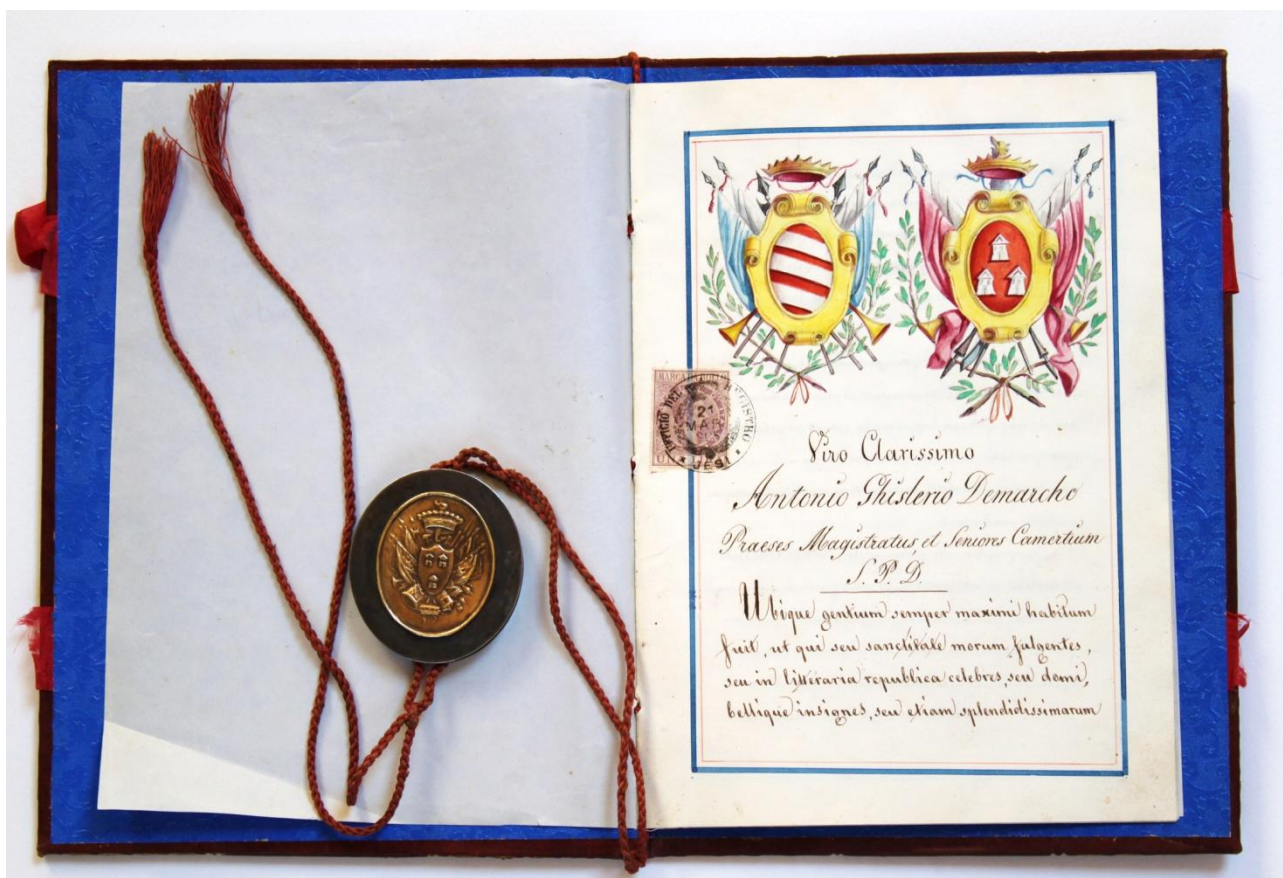 MARCA DA BOLLO
UFFICIO DEL REGISTRO
21
MAR
JESI
Viro Clarissimo
Antonio Ghislerio Demarcho
Praeses Magistratus, et Seniores Camertium
S. P. D.
Ubique gentium semper maximi habitum
fuit, ut qui seu sanctitate morum fulgentes,
seu in litteraria republica celebres, seu domi,
bellique insignes, seu etiam splendidissimarum